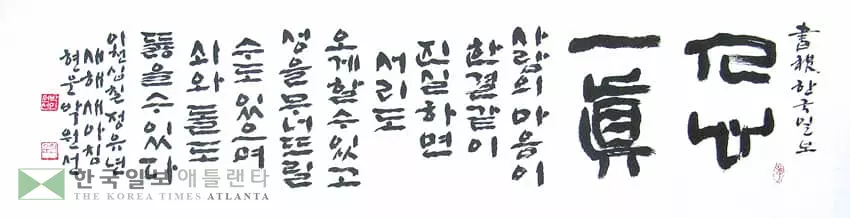 書祝 한국일보
人心
一眞
사람의 마음이
한결같이
진실하면
서리도
오게할수있고
성을 무너뜨릴
수도 있으며
쇠와 돌도
뚫을수있다
이천십칠 정유년
새해새아침
현문
한국일보애틀랜타
THE KOREA TIMES ATLANTA